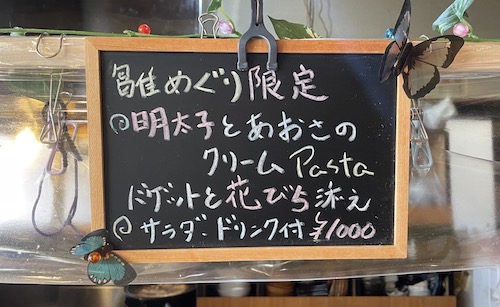 雛めぐり限定
◎明太子とあおさの
クリームPasta
バゲットと花びら添え
◎サラダ・ドリンク付 ¥1000